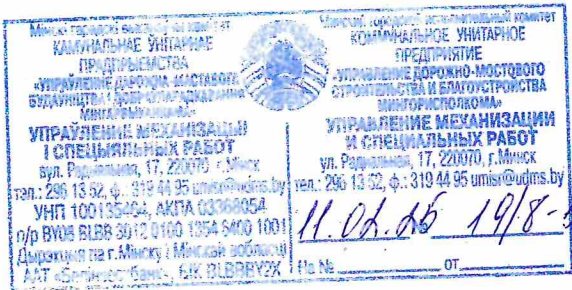 Мінскі гарадскі
КАМУНАЛЬНАЕ ЎНІТАРНАЕ
ПРАДПРЫЕМСТВА
«УПРАЎЛЕННЕ
БУДАЎНІЦТВА
УПРАЎЛЕННЕ МЕХАНІЗАЦЫІ
І СПЕЦЫЯЛЬНЫХ РАБОТ
вул. Радыяльная, 17, 220070, г.Мінск
тэл.: 296 13 52, ф.: 319 44 95 umisr@udms.by
УНП 100135404, АКПА 03368054
р/р BY08 BLBB 3012 0100 1354 6400 1001
Дырэкцыя па г.Мінску і Мінскай вобласці
ААТ «Белінвестбанк», БІК BLBBBY2X
Минский городской исполнительный комитет
КОММУНАЛЬНОЕ УНИТАРНОЕ
ПРЕДПРИЯТИЕ
«УПРАВЛЕНИЕ ДОРОЖНО-МОСТОВОГО
СТРОИТЕЛЬСТВА И БЛАГОУСТРОЙСТВА
МИНГОРИСПОЛКОМА»
УПРАВЛЕНИЕ МЕХАНИЗАЦИИ
И СПЕЦИАЛЬНЫХ РАБОТ
ул. Радиальная, 17, 220070, г.Минск
тел.: 296 13 52, ф.: 319 44 95 umisr@udms.by
11.02.25 19/8-
На № от